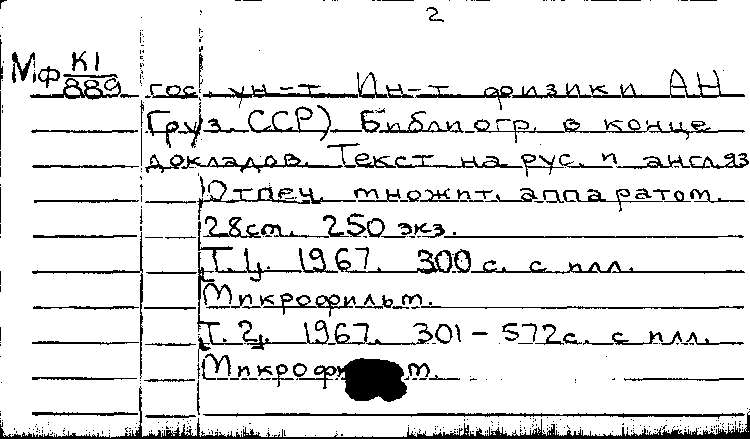 2
Мф К1/889 гос. ун-т. Ин-т. физики АН
Груз. ССР). Библиогр. в конце
докладов. Текст на рус. и англ. яз
Отпеч. множит. аппаратом.
28см. 250 экз.
Т. 1. 1967. 300 с. с илл.
Микрофильм.
Т. 2. 1967. 301-572с. с илл.
Микрофильм.